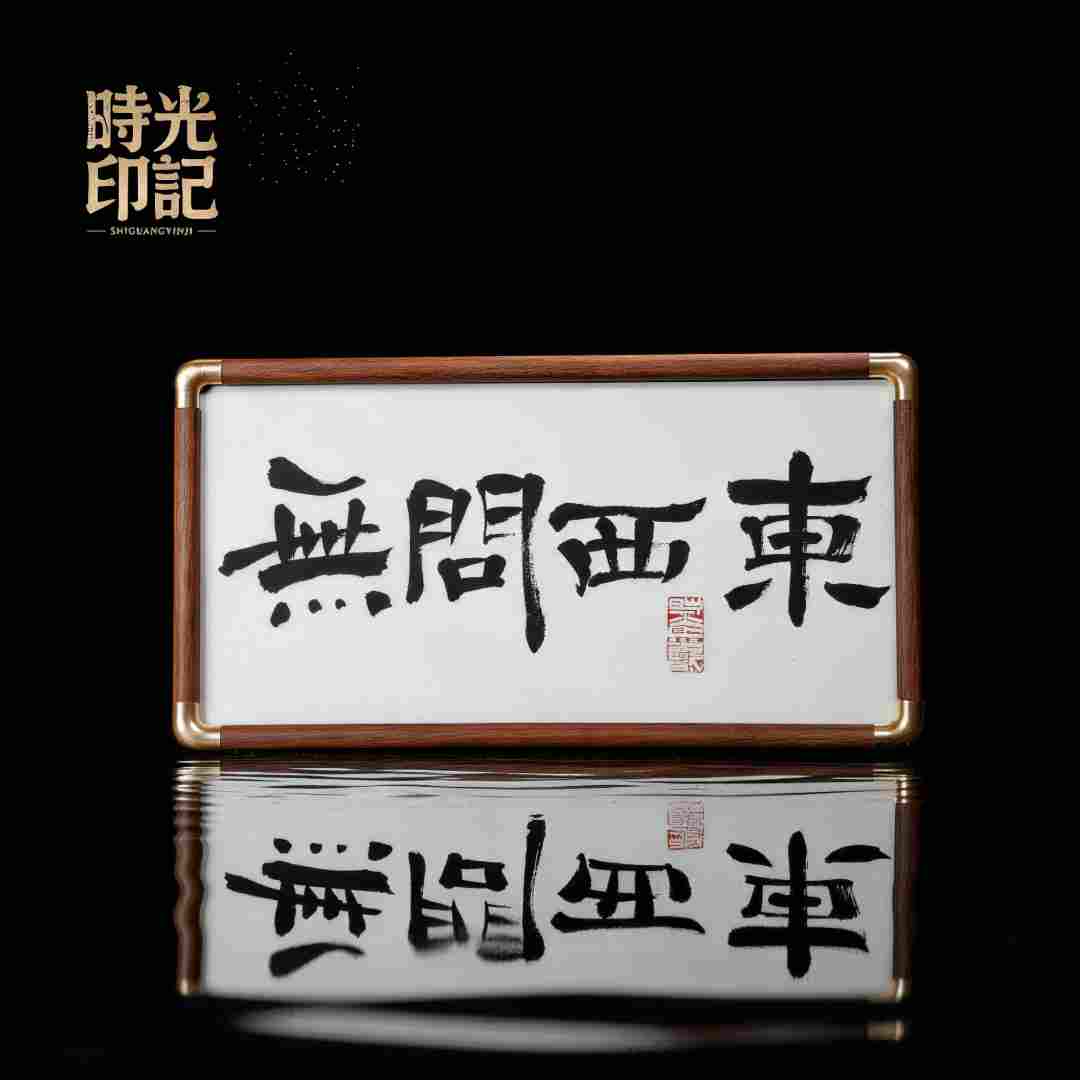 時光
印記
SHIGUANGYINJI
無問西東